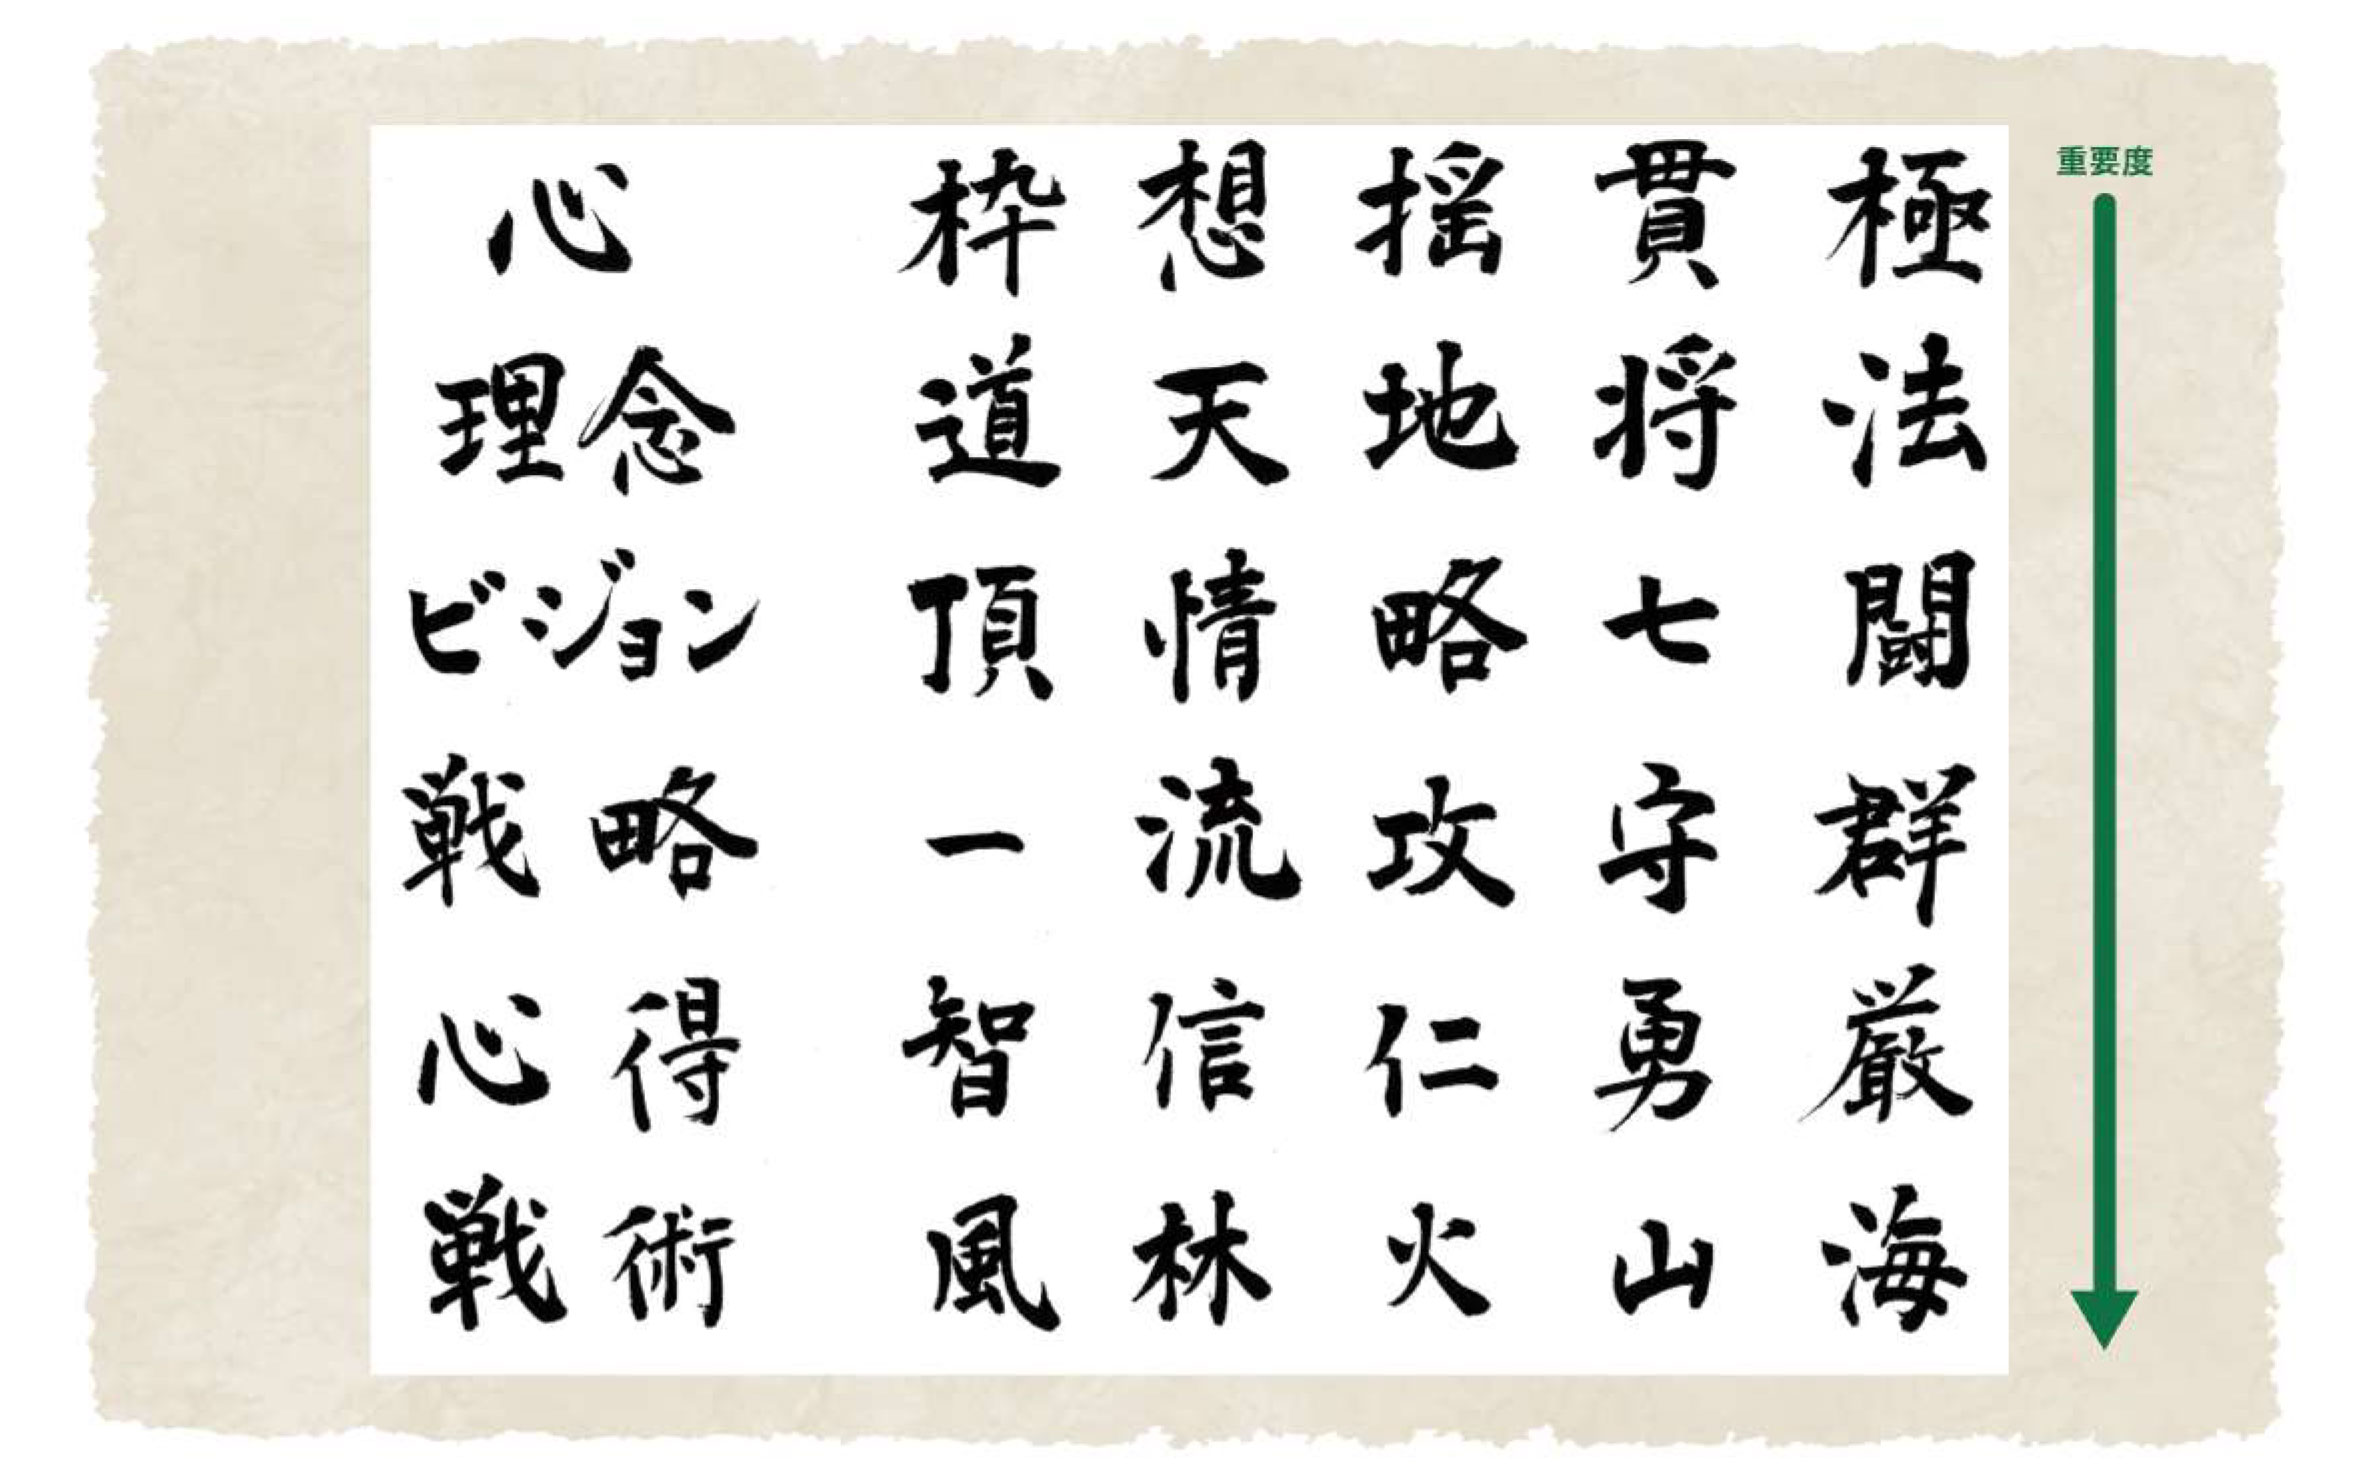 重要度
心 枠 想 揺 貫 極
理念 道 天 地 将 法
ビジョン 頂 情 略 七 闘
戦略 一 流 攻 守 群
心得 智 信 仁 勇 厳
戦術 風 林 火 山 海